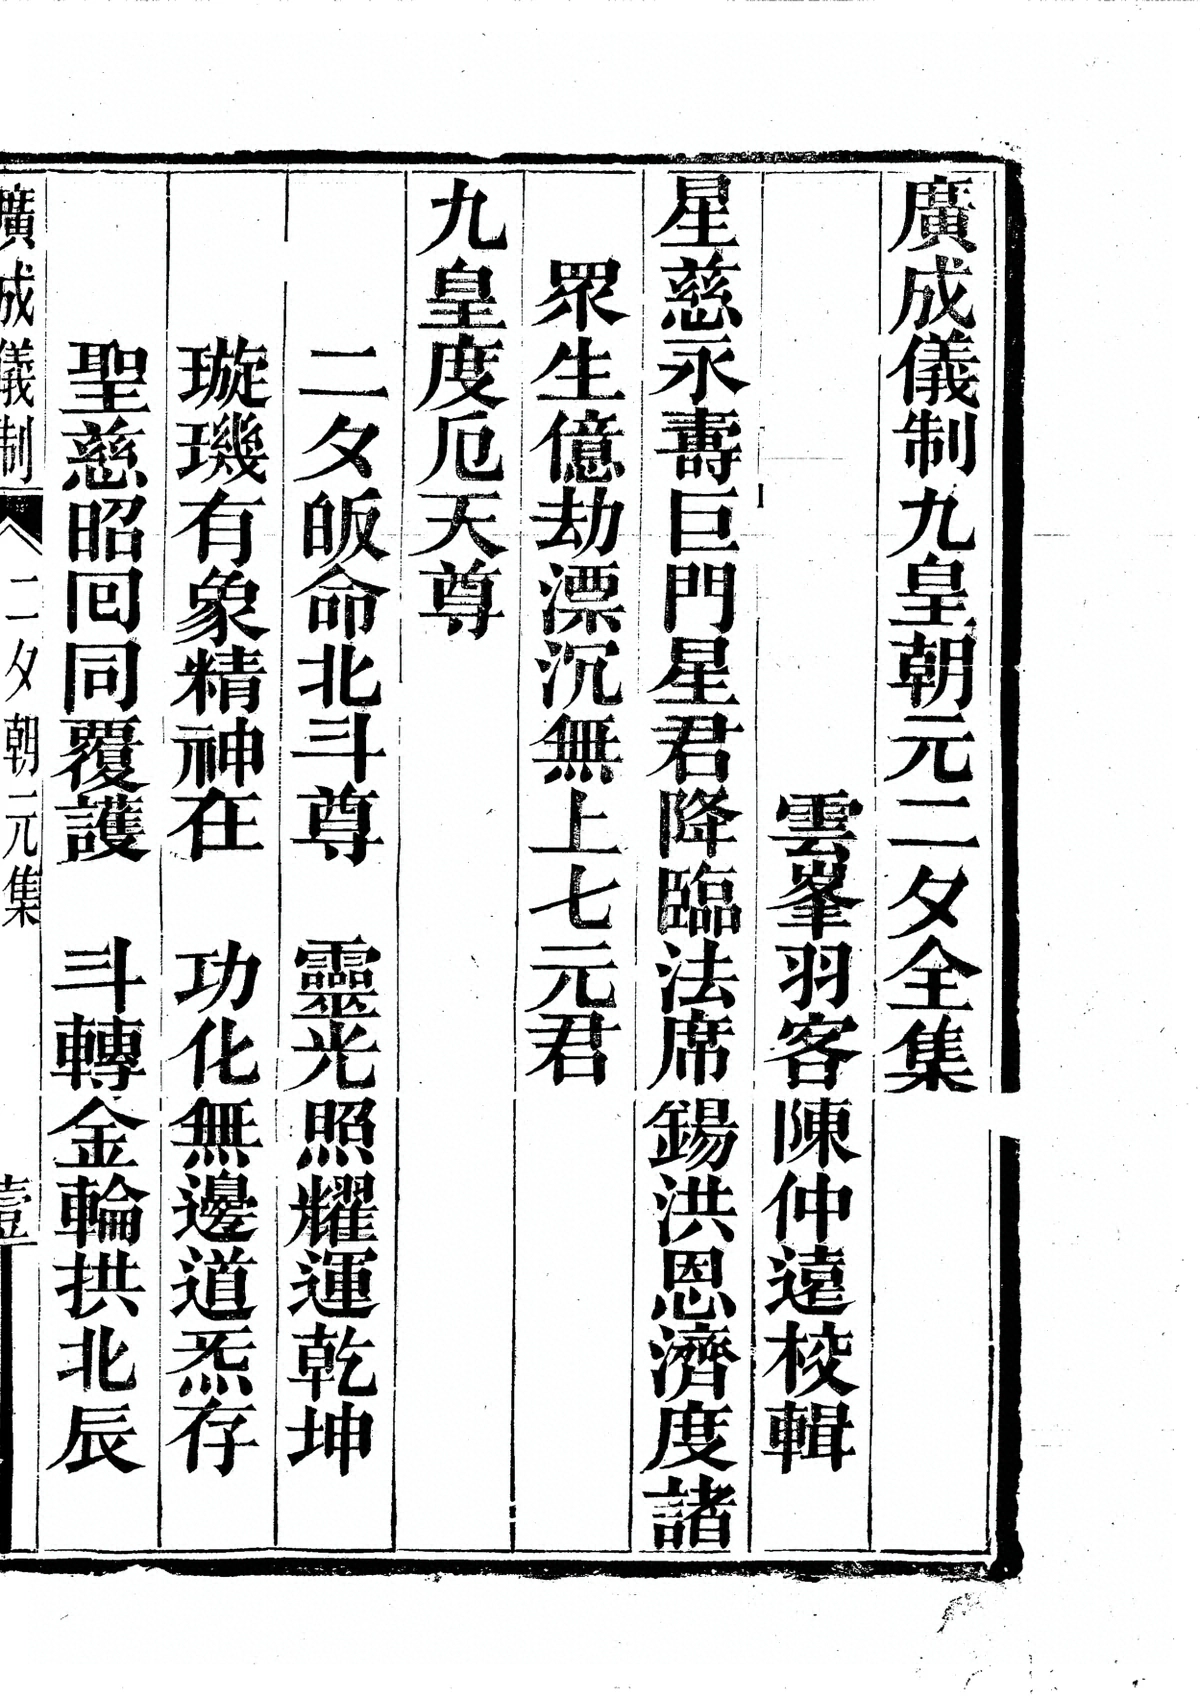 廣成儀制九皇朝元二夕全集
雲峯羽客陳仲遠校輯
星慈永壽巨門星君降臨法席錫洪恩濟度諸
眾生億劫漂沉無上七元君
九皇度厄天尊
二夕皈命北斗尊　靈光照耀運乾坤
璇璣有象精神在　功化無邊道炁存
聖慈昭回同覆護　斗轉金輪拱北辰
廣成儀制　二夕朝元集　壹